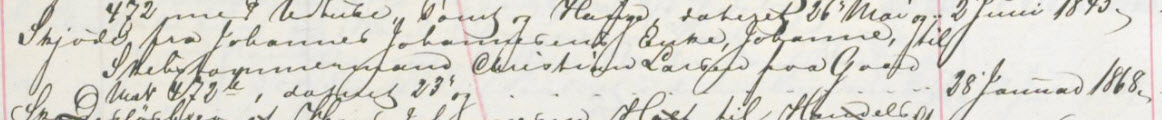 472 med Udhuse, Tomt og Hauge, dateret 26' Mai og 2 Juni 1843.
Skjøde fra Johannes Johannesens Enke, Johanne, til
Skibstømmermand Christian Larsen paa Gaard
Matr 472 b, dateret 23' og 28' Januar 1868.
til Handels